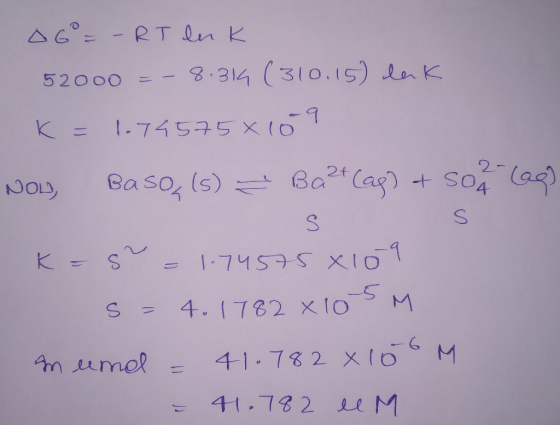 ΔG° = - RT ln K
52000 = - 8.314 (310.15) ln K
K = 1.74575 × 10⁻⁹
NOW, BaSO₄ (s) ⇌ Ba²⁺ (aq) + SO₄²⁻ (aq)
S S
K = S² = 1.74575 × 10⁻⁹
S = 4.1782 × 10⁻⁵ M
In umol = 41.782 × 10⁻⁶ M
= 41.782 uM